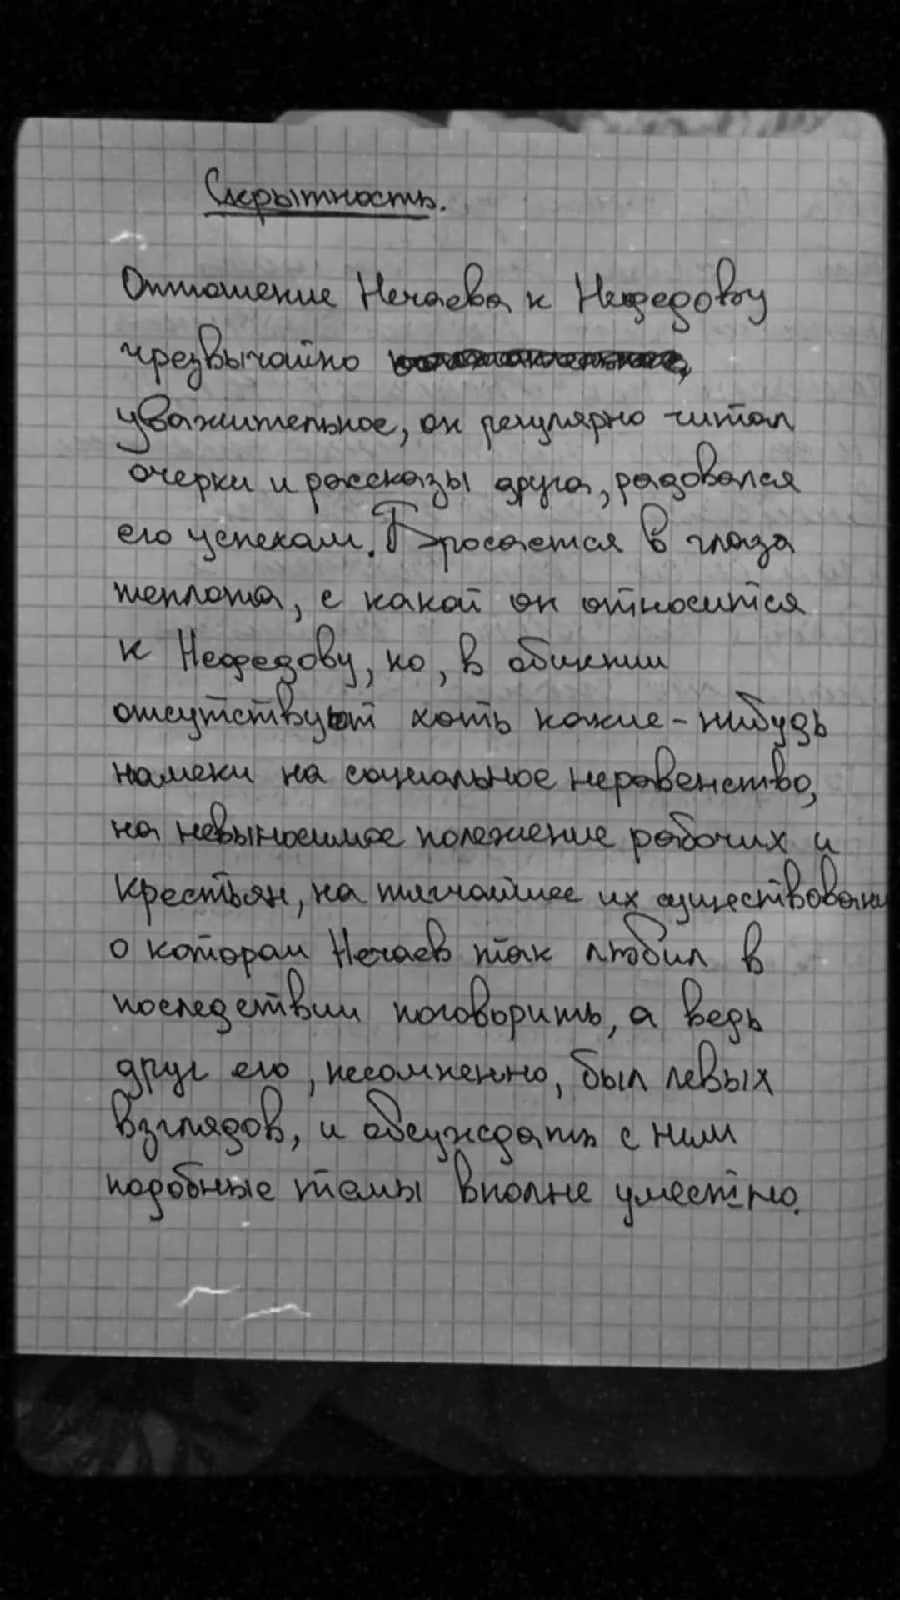 Скрытность.
Отношение Нечаева к Нефедову
чрезвычайно
уважительное, он регулярно читал
очерки и рассказы друга, радовался
его успехам. Бросается в глаза
теплота, с какой он относится
к Нефедову, но, в общении
отсутствуют хоть какие-нибудь
намеки на социальное неравенство,
на невыносимое положение рабочих и
крестьян, на тягчайшее их существовани
о котором Нечаев так любил в
последствии поговорить, а ведь
друг его, несомненно, был левых
взглядов, и обсуждать с ним
подобные темы вполне уместно.